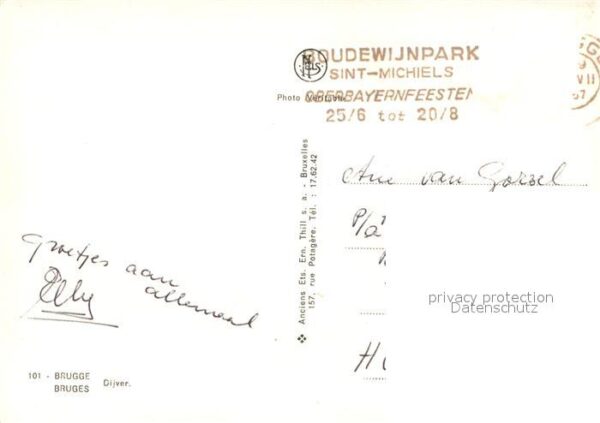 BOUDEWIJNPARK
SINT-MICHIELS
OBERBAYERNFEESTEN
25/6 tot 20/8
VII
67
Photo Véritable
Anciens Ets. Ern. Thill s. a. - Bruxelles
157, rue Potagère, Tél. : 17.62.42
van Gorsel
P/a
privacy protection
Datenschutz
Groetjes aan
allemaal
Elly
101 - BRUGGE
BRUGES Dijver.